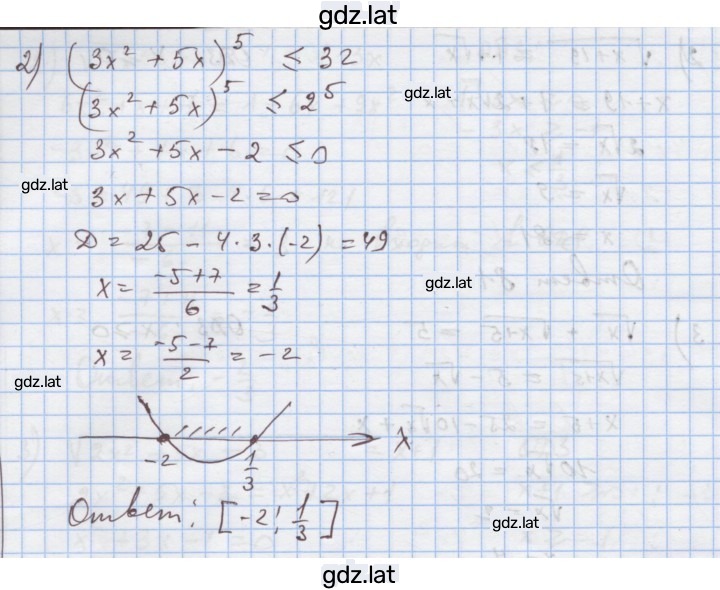 gdz.lat
2) (3x² + 5x)⁵ ≤ 32
(3x² + 5x)⁵ ≤ 2⁵
gdz.lat
3x² + 5x - 2 ≤ 0
gdz.lat
3x + 5x - 2 = 0
D = 25 - 4 · 3 · (-2) = 49
x = (-5+7)/6 = 1/3
gdz.lat
x = (-5-7)/2 = -2
gdz.lat
-2 1/3 x
Ответ: [-2; 1/3]
gdz.lat
gdz.lat